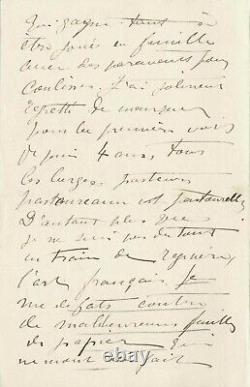 qui gagne tant à
être joués en famille
avec des paravents pour
coulisses. J'ai joliment
regretté de manquer
pour la première fois
depuis 4 ans, tous
les turges, pasteurs
pastoureaux et pastourelles
D'autant plus que
je ne suis pas du tout
en train de
l'art français. Je
me débats contre
de malheureuses feuilles
de papier qui
ne m'ont pas fait